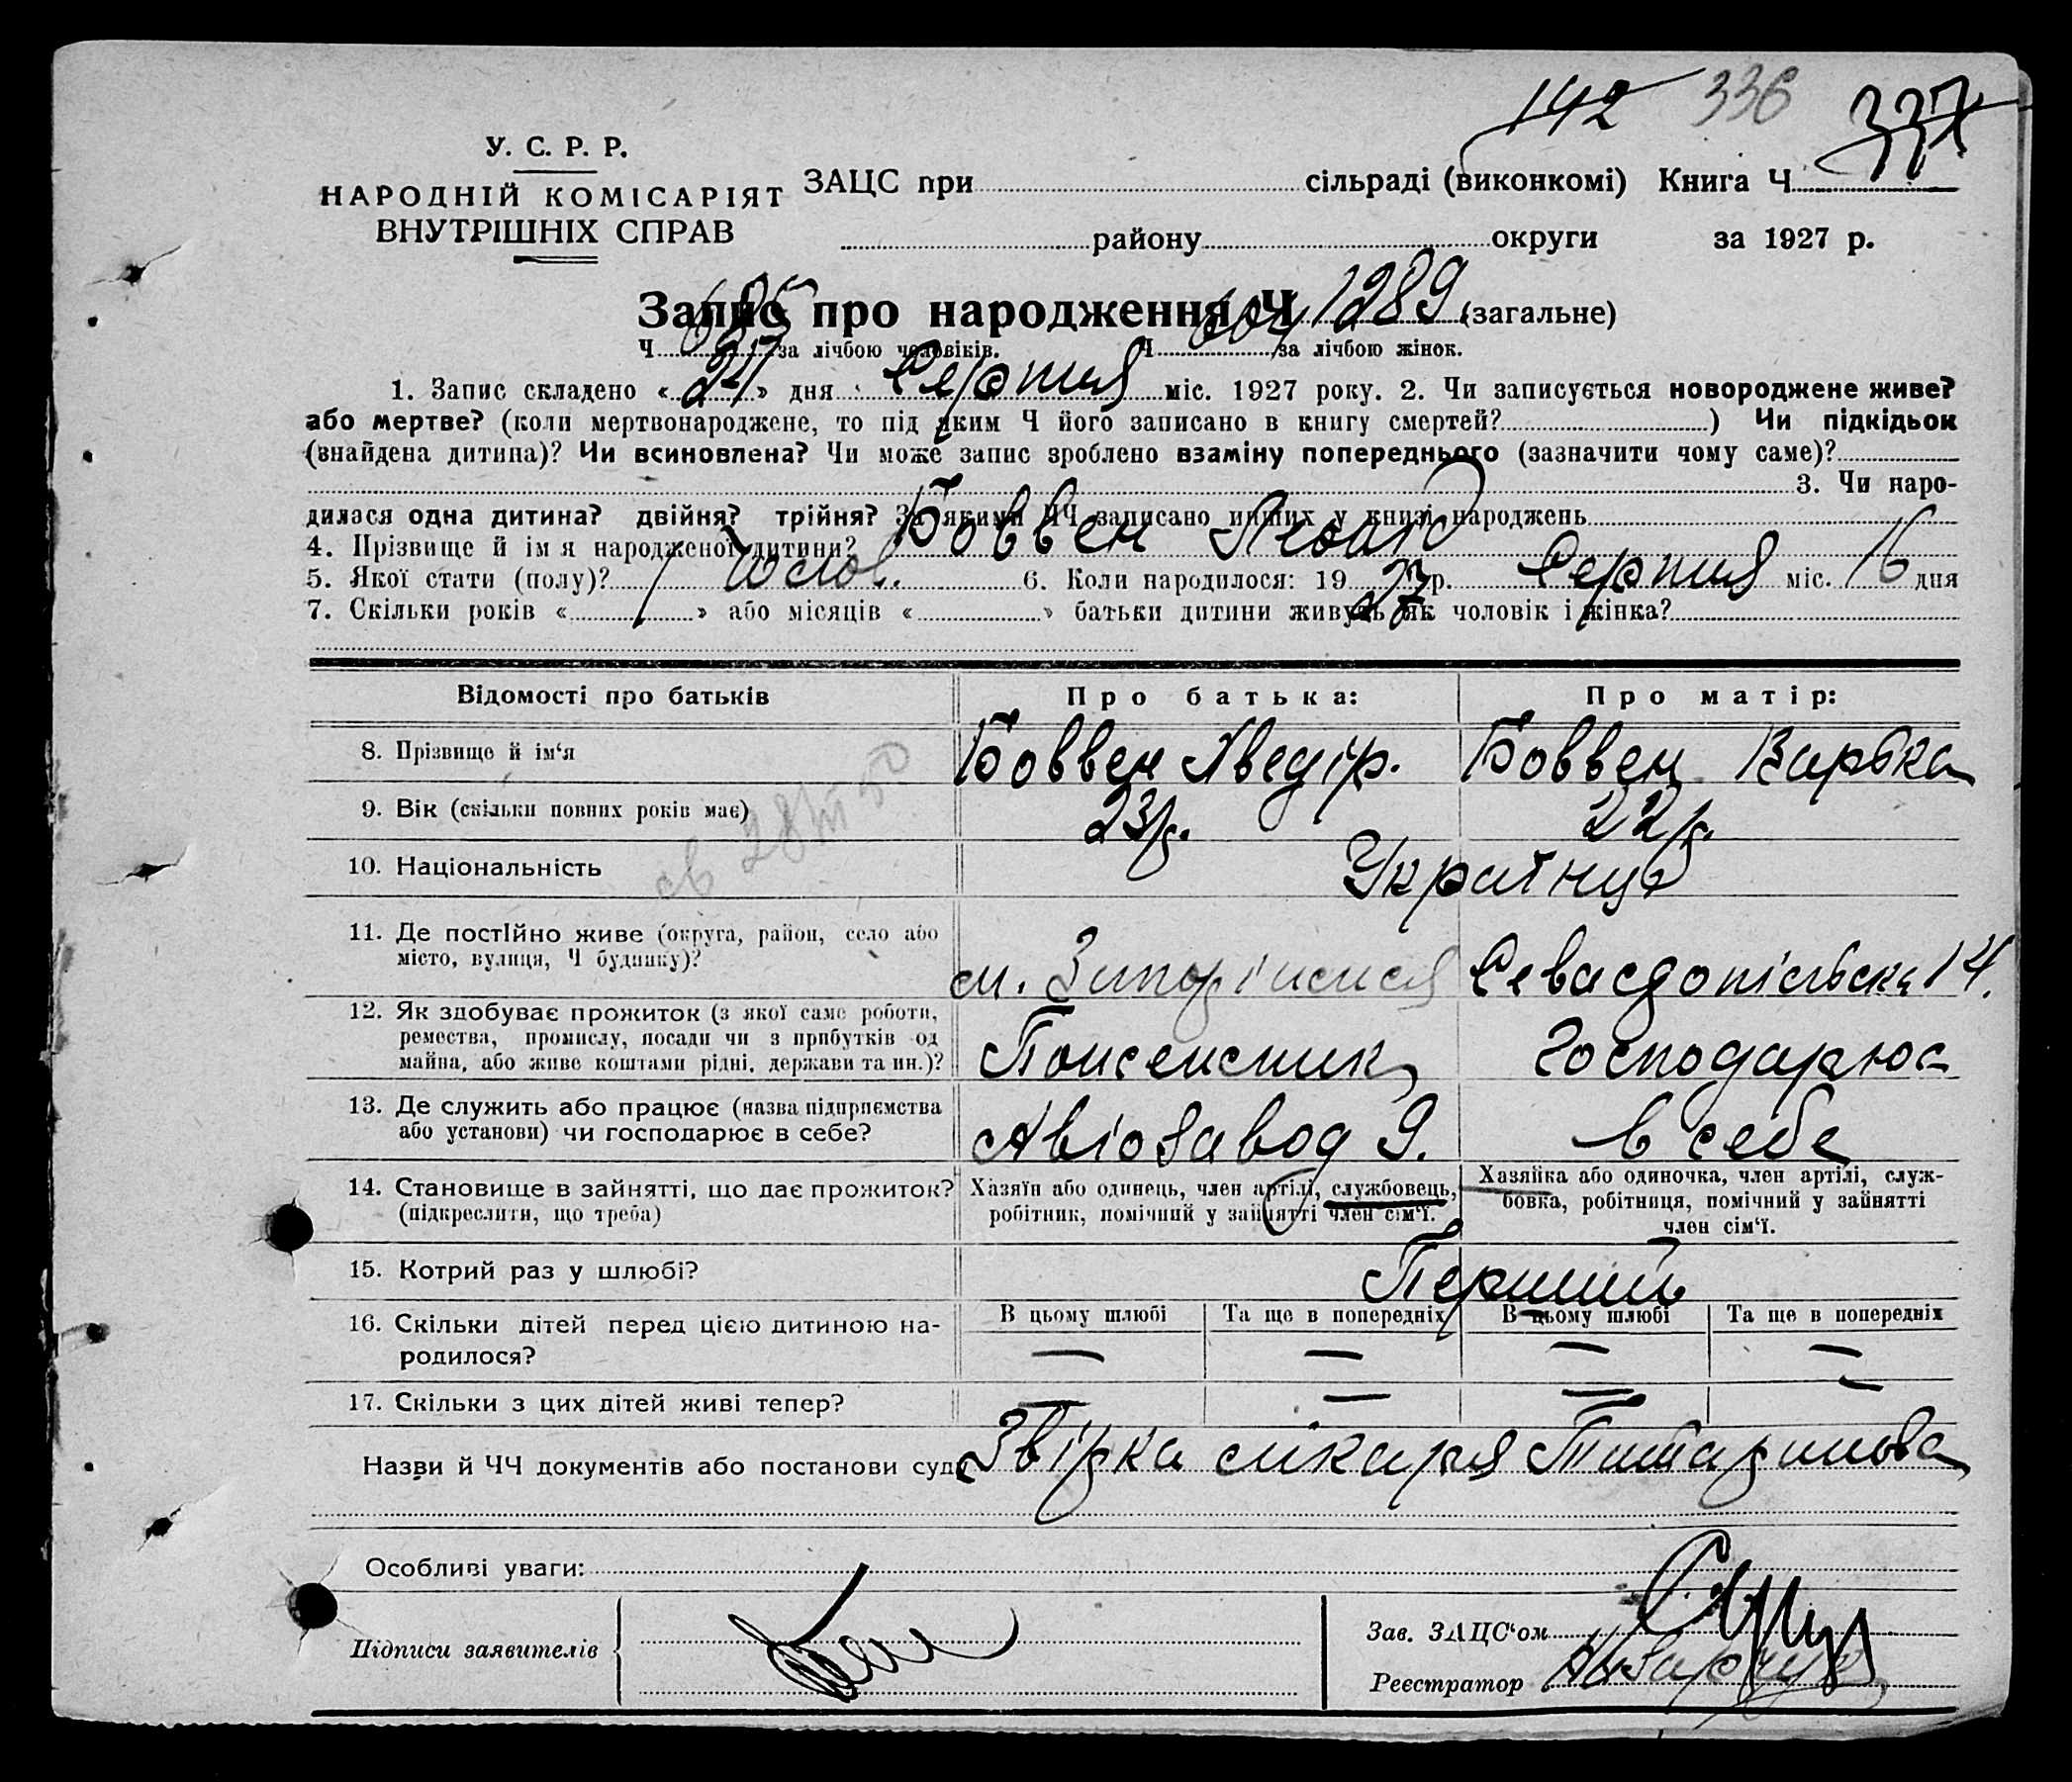 142 336 337
У. С. Р. Р.
НАРОДНІЙ КОМІСАРІЯТ
ВНУТРІШНІХ СПРАВ
ЗАЦС при сільраді (виконкомі) Книга Ч
району округи за 1927 р.
Запис про народження Ч 1289 (загальне)
Ч 685 за лічбою чоловіків. Ч 604 за лічбою жінок.
1. Запис складено « 24 » дня Серпня міс. 1927 року. 2. Чи записується новороджене живе?
або мертве? (коли мертвонароджене, то під яким Ч його записано в книгу смертей? ) Чи підкідьок
(знайдена дитина)? Чи всиновлена? Чи може запис зроблено взаміну попереднього (зазначити чому саме)?
3. Чи наро-
дилася одна дитина? двійня? трійня? За якими ЧЧ записано инших у книзі народжень
4. Прізвище й ім я народженої дитини? Боввен Леонід
5. Якої стати (полу)? чолов. 6. Коли народилося: 19 27 р. Серпня міс. 16 дня
7. Скільки років « 1 » або місяців « » батьки дитини живуть як чоловік і жінка?
Відомості про батьків Про батька: Про матір:
8. Прізвище й ім‘я Боввен Хведір. Боввен Варька
9. Вік (скільки повних років має) 23 р. 22 р.
10. Національність Українці
11. Де постійно живе (округа, район, село або
місто, вулиця, Ч будинку)? м. Запоріжжя Севастопільська 14.
12. Як здобуває прожиток (з якої саме роботи,
ремества, промислу, посади чи з прибутків од
майна, або живе коштами рідні, держави та ин.)? Пожежник Господарює
13. Де служить або працює (назва підприємства
або установи) чи господарює в себе? Авіозавод 9. в себе
14. Становище в зайнятті, що дає прожиток?
(підкреслити, що треба)
Хазяїн або одинець, член артілі, службовець,
робітник, помічний у зайнятті член сім‘ї.
Хазяйка або одиночка, член артілі, служ-
бовка, робітниця, помічний у зайнятті
член сім‘ї.
15. Котрий раз у шлюбі? Перший
16. Скільки дітей перед цією дитиною на-
родилося?
В цьому шлюбі Та ще в попередніх В цьому шлюбі Та ще в попередніх
— — — —
17. Скільки з цих дітей живі тепер? — — — —
Назви й ЧЧ документів або постанови суду Звірка лікаря
Особливі уваги:
Підписи заявителів
Зав. ЗАЦС‘ом
Реєстратор